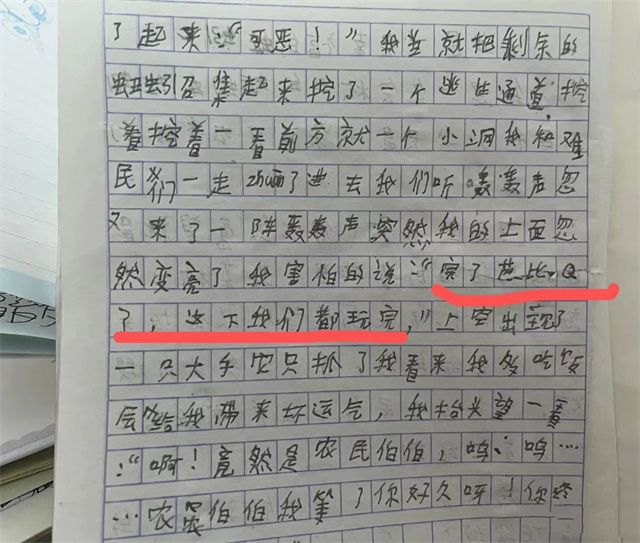 了起来："可恶！"我差就把剩余的
蚯蚓召集起来挖了一个逃生通道，挖
着挖着一看前方就一个小洞我和难
民们一走zhuān了进去我们听轰轰声忽
又来了一阵轰轰声突然我的上面忽
然变亮了我害怕的说："完了芭比Q
了，这下我们都玩完，"上空出现了
一只大手农只抓了我看来我多吃饭
会给我带来坏运气，我抬头望一看
："啊！竟然是农民伯伯，呜、呜…
…农民伯伯我等了你好久呀！你终